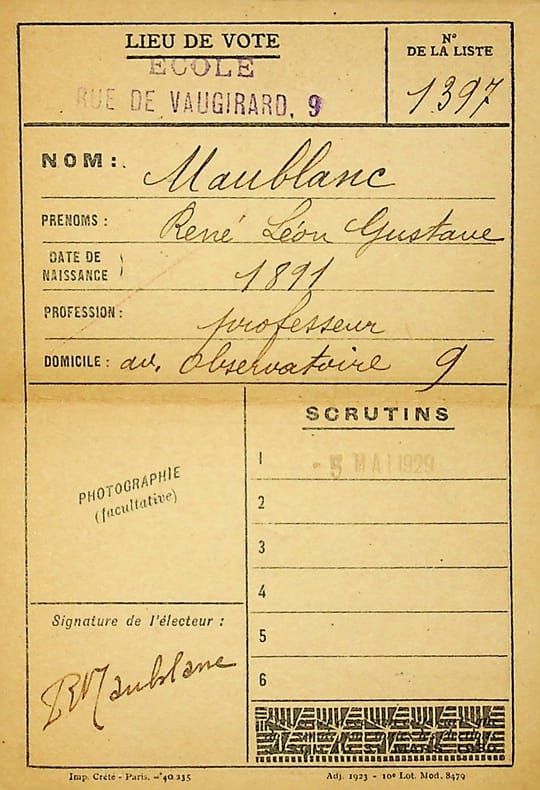 LIEU DE VOTE
ECOLE
RUE DE VAUGIRARD, 9
N°
DE LA LISTE
1397
NOM: Maublanc
PRENOMS: René Léon Gustave
DATE DE
NAISSANCE } 1891
PROFESSION: professeur
DOMICILE: av. Observatoire 9
PHOTOGRAPHIE
(facultative)
Signature de l'électeur :
RMaublanc
SCRUTINS
1 - 5 MAI 1929
2
3
4
5
6
Imp. Crété - Paris. -'40 235
Adj. 1923 - 10e Lot. Mod. 8479